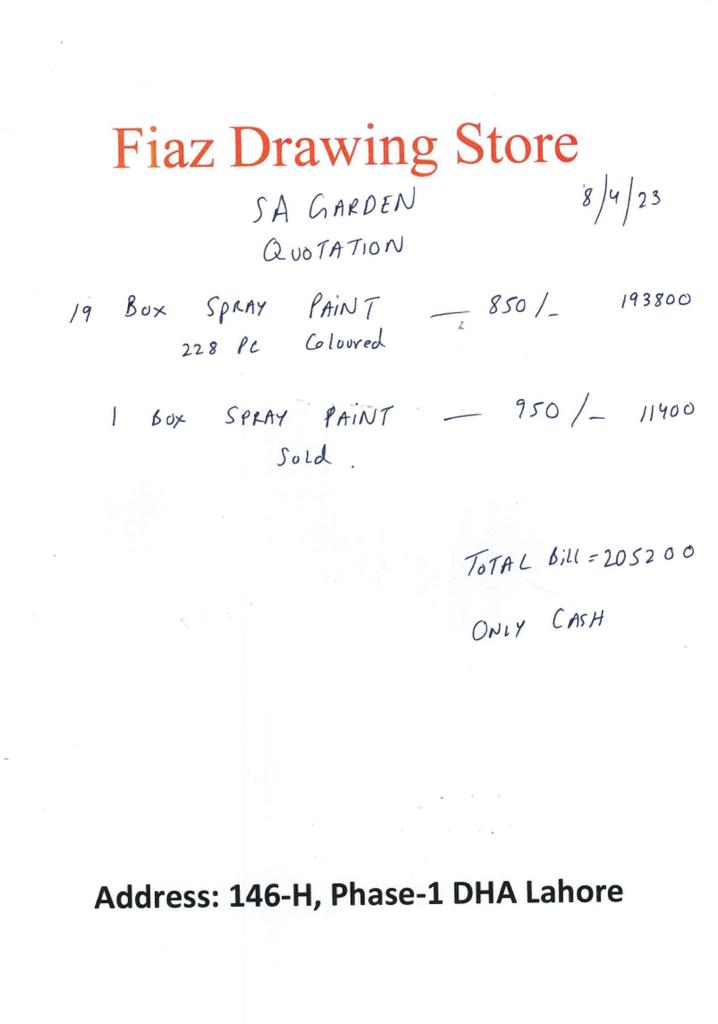 Fiaz Drawing Store
SA GARDEN 8/4/23
QUOTATION
19 Box SPRAY PAINT — 850/- 193800
228 Pc Coloured
1 Box SPRAY PAINT — 950/- 11400
Sold.
TOTAL Bill = 205200
ONLY CASH
Address: 146-H, Phase-1 DHA Lahore